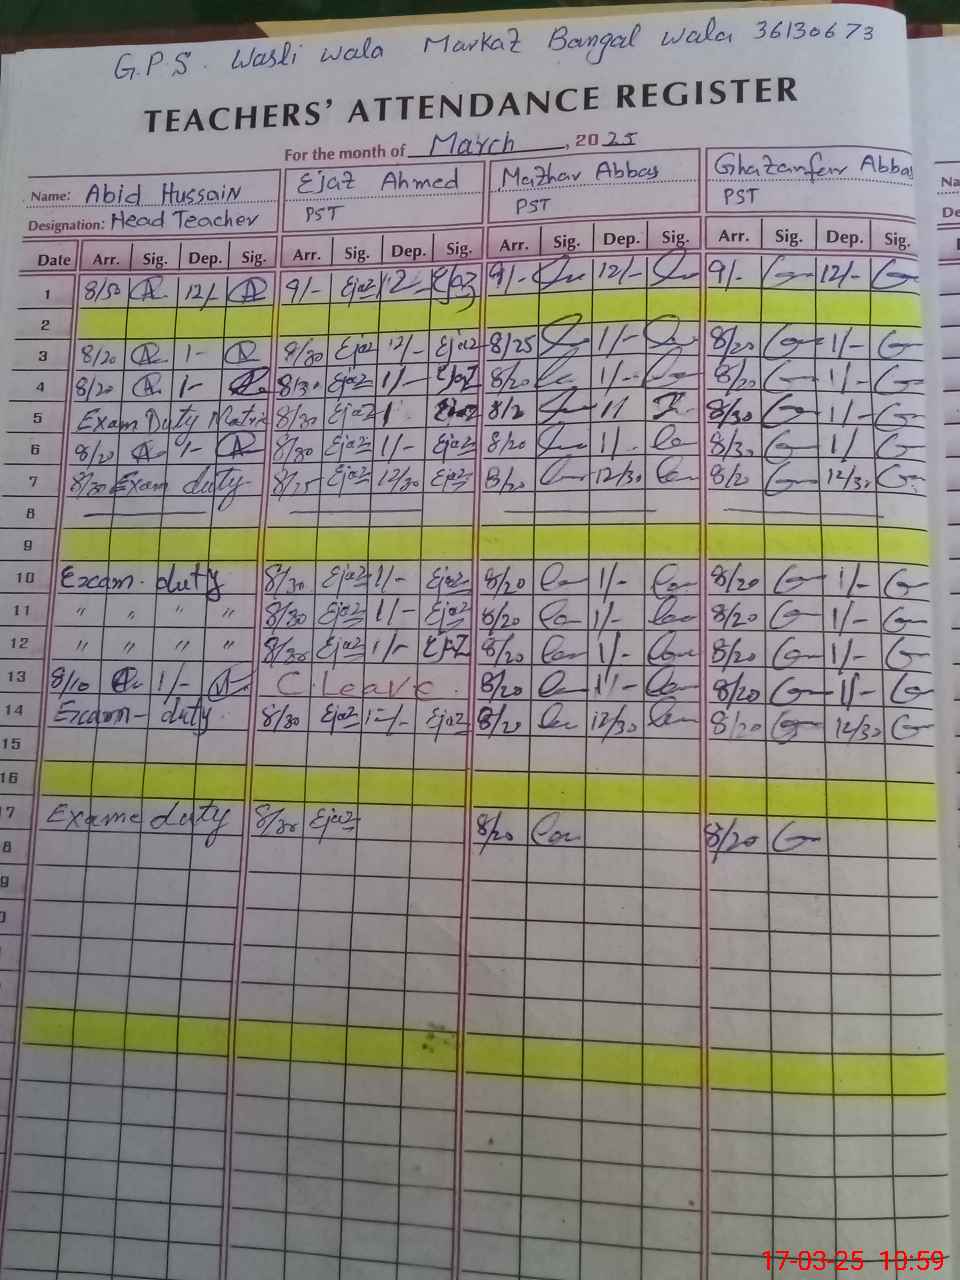 G.P.S. Wasli wala Markaz Bangal wala 36130673
TEACHERS' ATTENDANCE REGISTER
For the month of March, 2025
Name: Abid Hussain Ejaz Ahmed Mazhar Abbas Ghazanferr Abbas
Designation: Head Teacher PST PST PST
Date Arr. Sig. Dep. Sig. Arr. Sig. Dep. Sig. Arr. Sig. Dep. Sig. Arr. Sig. Dep. Sig.
1 8/50 12/- 9/- Ejaz 12- Ejaz 9/- 12/- 9/- 12/-
2
3 8/20 1- 8/30 Ejaz 12/- Ejaz 8/25 1/- 8/20 1/-
4 8/20 1- 8/30 Ejaz 1/- Ejaz 8/20 1/- 8/20 1/-
5 Exam Duty Matric 8/30 Ejaz 1 Ejaz 8/2 1/ 8/30 1/-
6 8/20 1- 8/30 Ejaz 1/- Ejaz 8/20 1/- 8/30 1/
7 8/30 Exam duty 8/25 Ejaz 12/30 Ejaz 8/20 12/30 8/20 12/30
8
9
10 Exam. duty 8/30 Ejaz 1/- Ejaz 8/20 1/- 8/20 1/-
11 " " " " 8/30 Ejaz 1/- Ejaz 8/20 1/- 8/20 1/-
12 " " " " 8/30 Ejaz 1/- EJAZ 8/20 1/- 8/20 1/-
13 8/10 1/- C. Leave. 8/20 1/- 8/20 1/-
14 Exam- duty. 8/30 Ejaz 12/- Ejaz 8/20 12/30 8/20 12/30
15
16
7 Exame duty 8/30 Ejaz 8/20 8/20
8
9
0
17-03-25 10:59